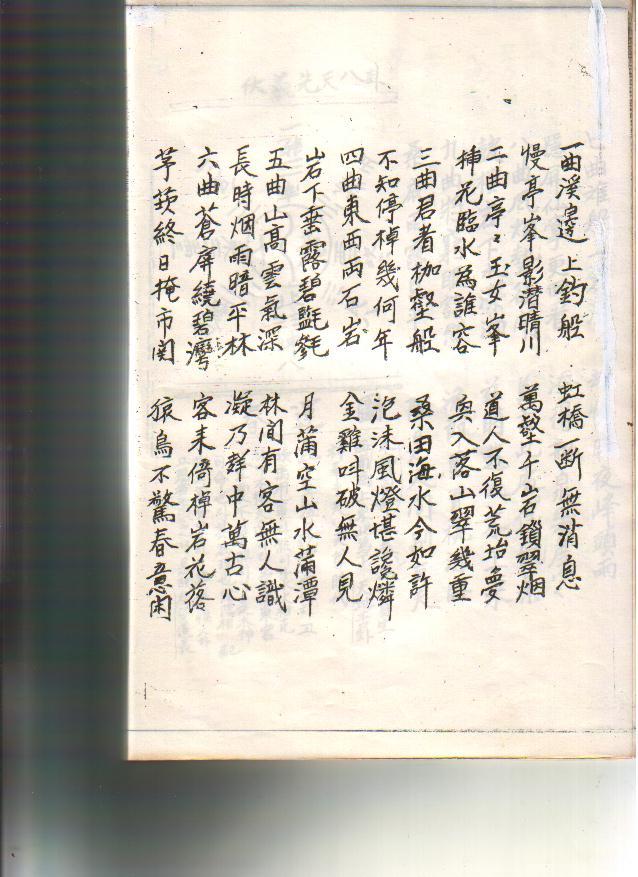 一曲溪邊上釣船 虹橋一断無消息
慢亭峯影潜晴川 萬壑千岩鎖翠烟
二曲亭々玉女峯 道人不復荒坮夢
揷花臨水為誰容 奥入落山翠幾重
三曲君者枷壑船 桑田海水今如許
不知停棹幾何年 泡沫風燈堪說憐
四曲東西両石岩 金雞呌破無人見
岩下垂露碧毵 月蒲空山水蒲潭
五曲山高雲氣深 林间有客無人識
長時烟雨暗平林 凝乃群中萬古心
六曲蒼屏繞碧灣 客来倚棹岩花落
芧茨終日掩市関 猿鳥不驚春意闲